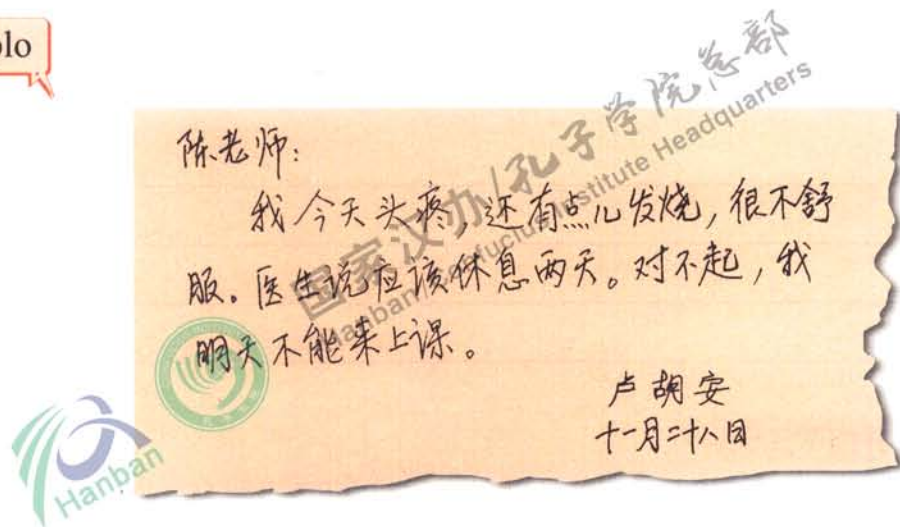 olo
国家汉办/孔子学院总部
Hanban/Confucius Institute Headquarters
陈老师:
我今天头疼,还有点儿发烧,很不舒
服。医生说应该休息两天。对不起,我
明天不能来上课。
卢胡安
十一月二十八日
Hanban